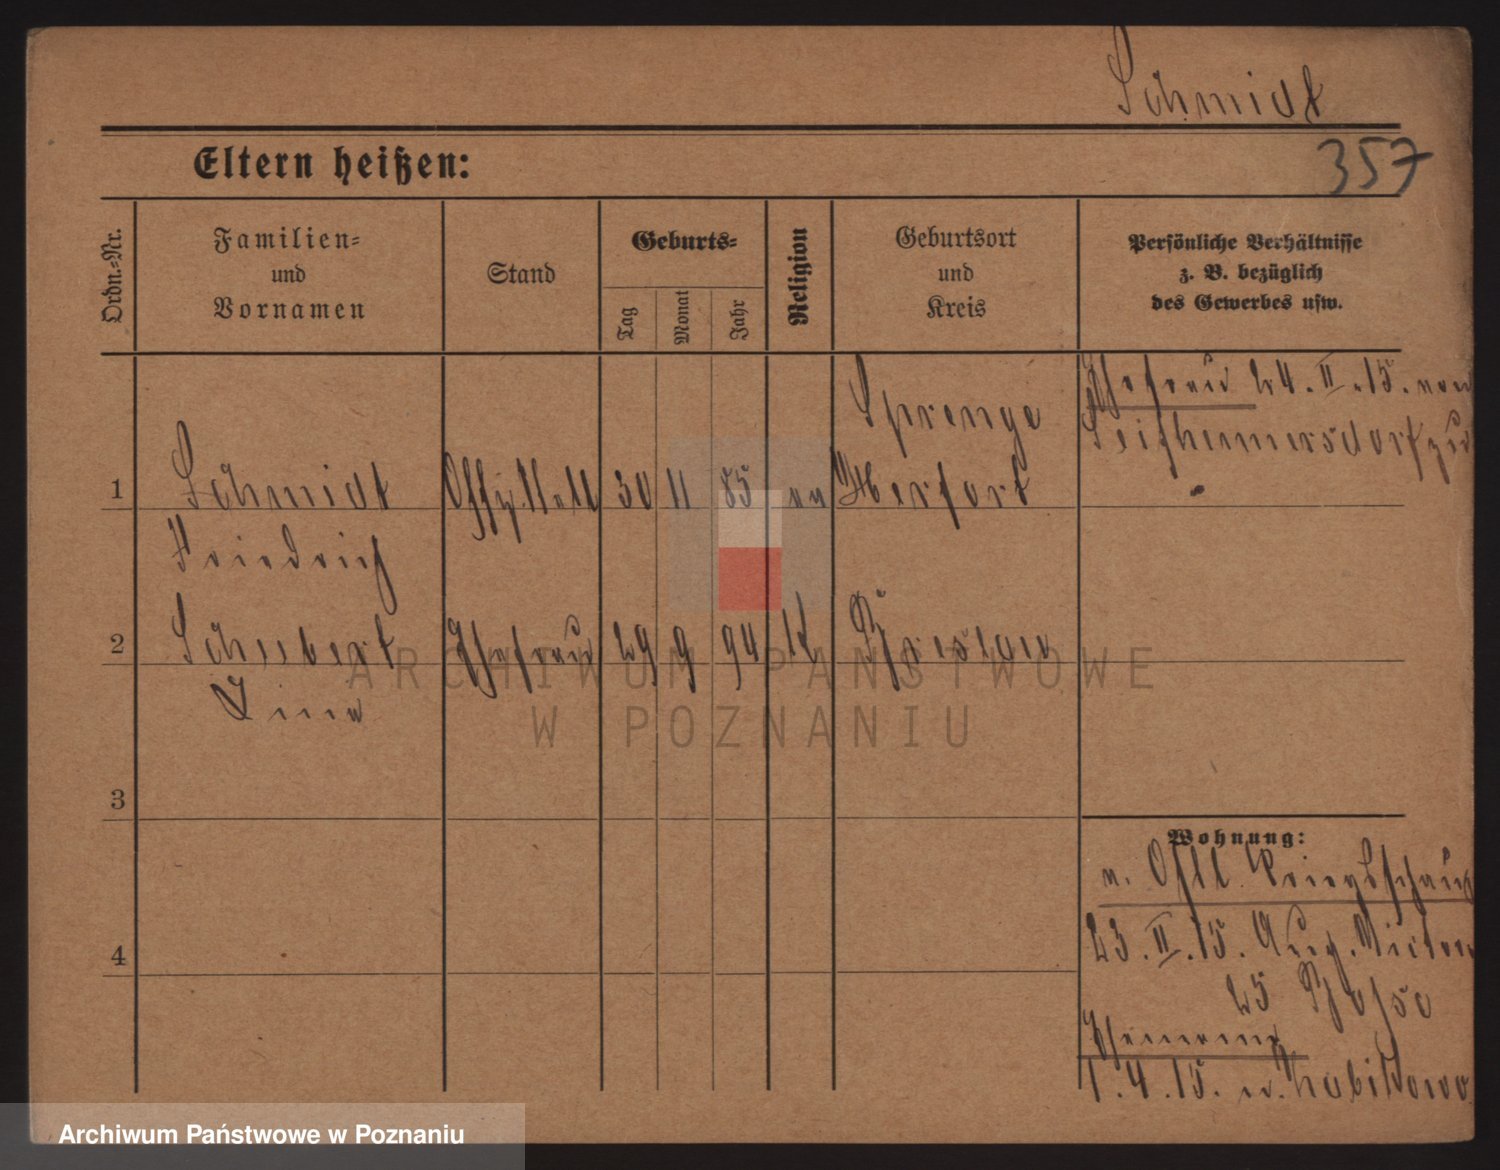 Schmidt
357
Eltern heißen:
Ordn.-Nr.
Familien-
und
Vornamen
Stand
Geburts-
Tag
Monat
Jahr
Religion
Geburtsort
und
Kreis
Persönliche Verhältnisse
z. B. bezüglich
des Gewerbes usw.
Ehefrau 24. II. 15. von
zu
Sprenge
1 Schmidt 30 11 85 ev Herford
Friedrich
2 Schubert Ehefrau 29 9 94 K Breslau
3
4
Wohnung:
23. II. 15. Aug. Victor
25
1. 4. 15. n.
ARCHIWUM PAŃSTWOWE
W POZNANIU
Archiwum Państwowe w Poznaniu